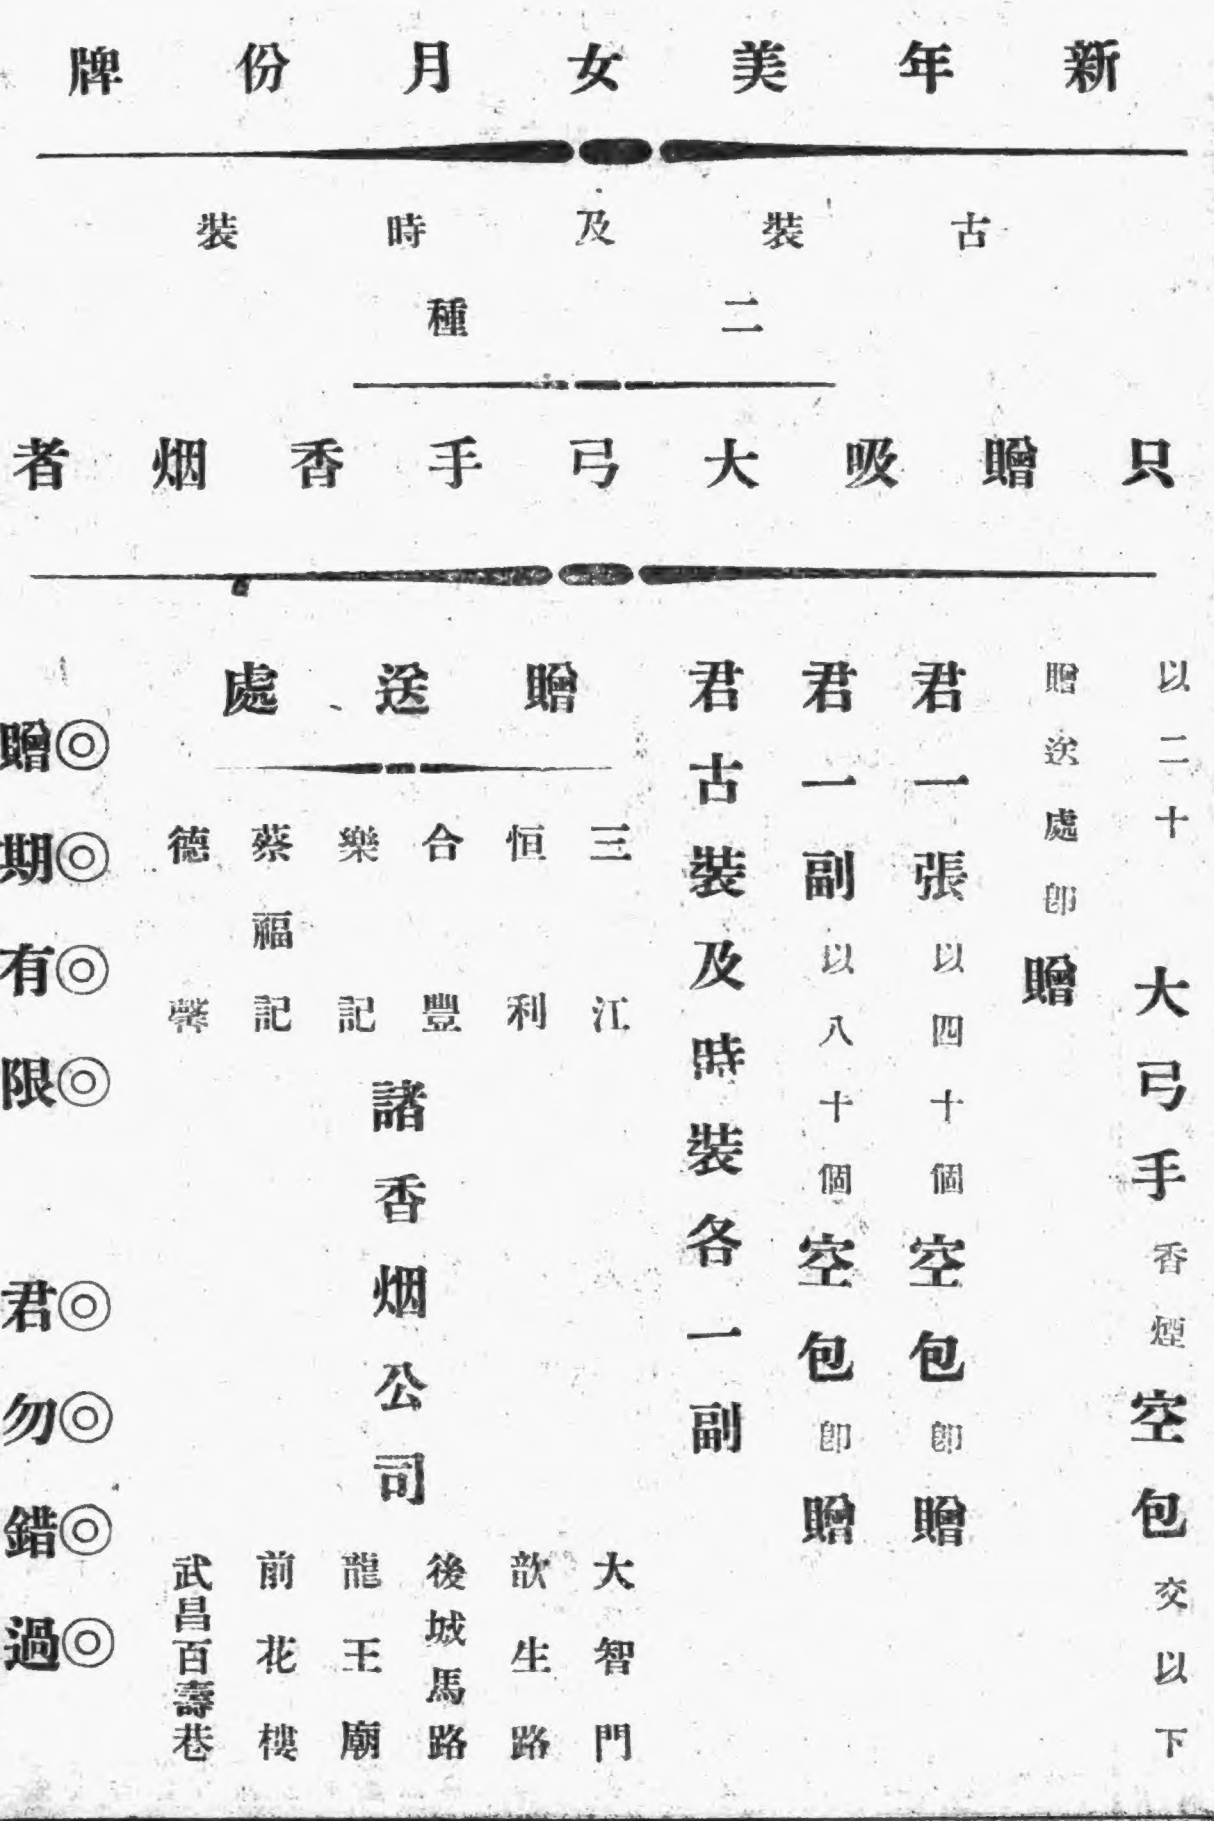 新年美女月份牌
古裝及時裝
二種
只贈吸大弓手香烟者
以二十大弓手香煙空包交以下
贈送處卽贈
君一張以四十個空包卽贈
君一副以八十個空包卽贈
君古裝及時裝各一副
贈送處
三江
恒利
合豐
樂記
蔡福記
德馨
諸香烟公司
大智門
歆生路
後城馬路
龍王廟
前花樓
武昌百壽巷
◎贈◎期◎有◎限◎君◎勿◎錯◎過